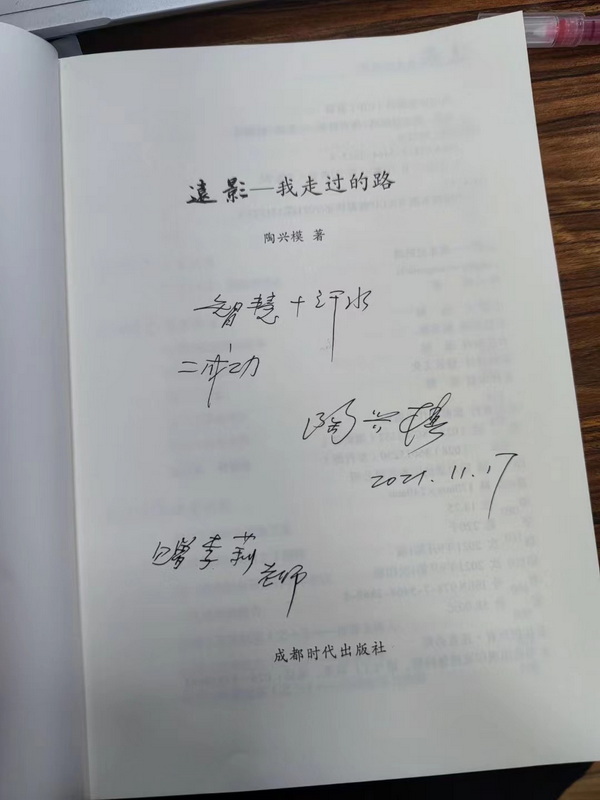 遠影—我走过的路
陶兴模 著
智慧+汗水
=成功
陶兴模
2021.11.17
赠李莉
老师
成都时代出版社